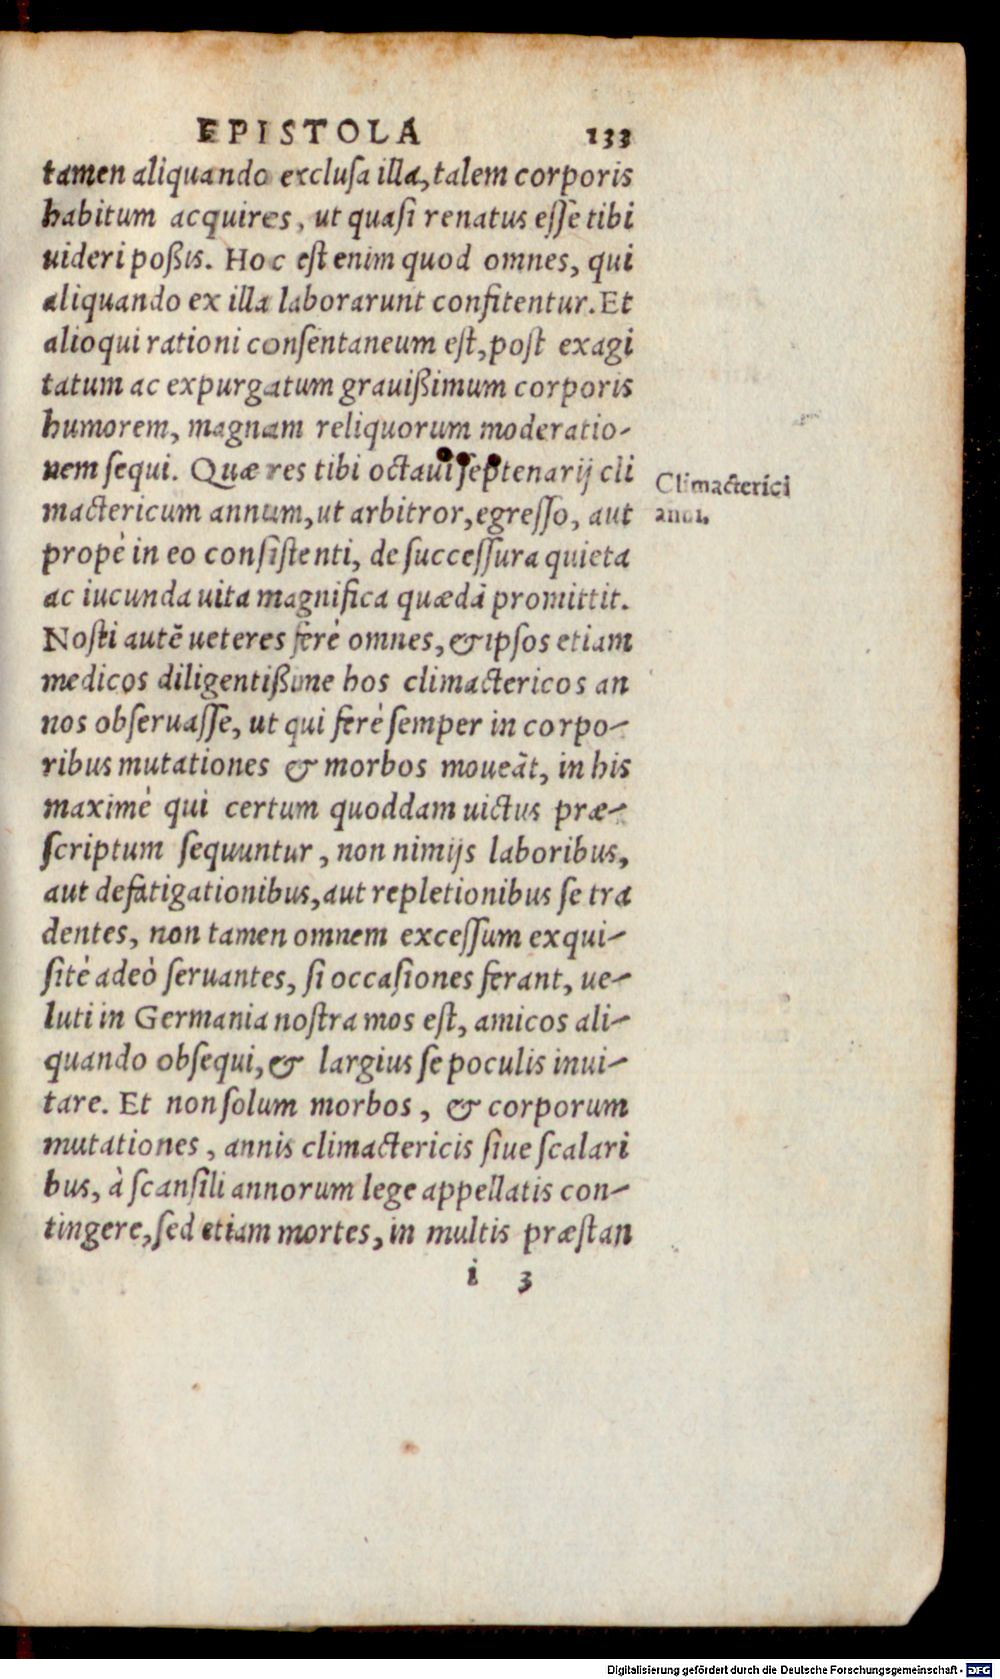 EPISTOLA 133
tamen aliquando exclusa illa, talem corporis
habitum acquires, ut quasi renatus esse tibi
uideri poßis. Hoc est enim quod omnes, qui
aliquando ex illa laborarunt confitentur. Et
alioqui rationi consentaneum est, post exagi
tatum ac expurgatum grauißimum corporis
humorem, magnam reliquorum moderatio-
nem sequi. Quæ res tibi octaui septenarij cli
Climacterici
mactericum annum, ut arbitror, egresso, aut
anni.
propè in eo consistenti, de successura quieta
ac iucunda uita magnifica quædã promittit.
Nosti autẽ ueteres ferè omnes, & ipsos etiam
medicos diligentißime hos climactericos an
nos obseruasse, ut qui ferè semper in corpo-
ribus mutationes & morbos moueãt, in his
maximè qui certum quoddam uictus præ-
scriptum sequuntur, non nimijs laboribus,
aut defatigationibus, aut repletionibus se tra
dentes, non tamen omnem excessum exqui-
sitè adeò seruantes, si occasiones ferant, ue-
luti in Germania nostra mos est, amicos ali-
quando obsequi, & largius se poculis inui-
tare. Et non solum morbos, & corporum
mutationes, annis climactericis siue scalari
bus, à scansili annorum lege appellatis con-
tingere, sed etiam mortes, in multis præstan
i 3
Digitalisierung gefördert durch die Deutsche Forschungsgemeinschaft - DFG